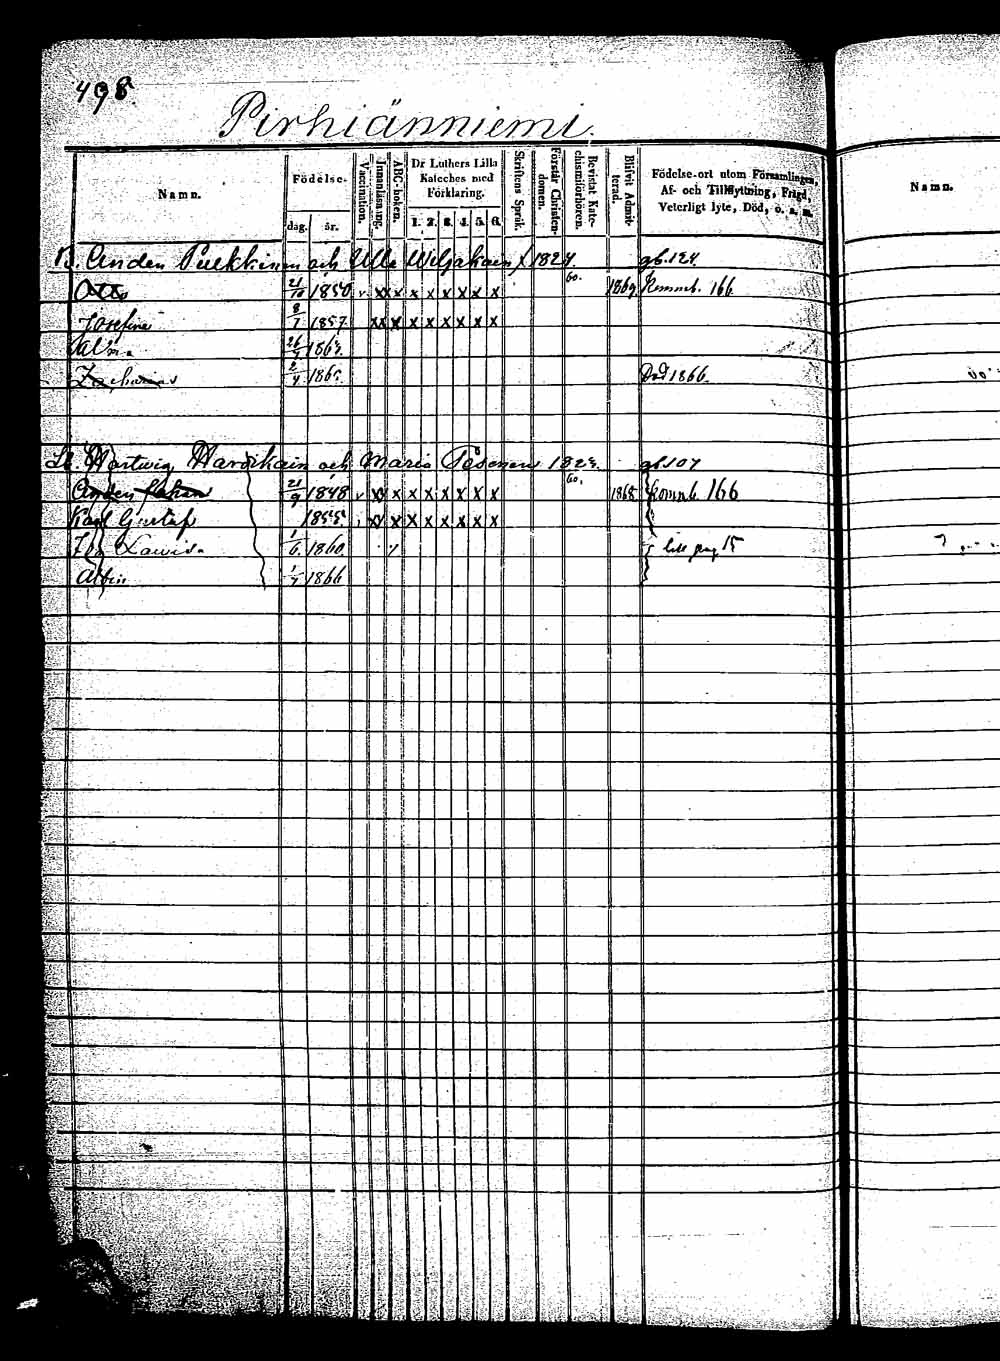 498.
Pirhiänniemi.
Namn.
Födelse-
dag. år.
Vaccination.
Innanläsning.
ABC-boken.
Dr Luthers Lilla Kateches med Förklaring.
1. 2. 3. 4. 5. 6.
Skriftens Språk.
Förstår Christendomen.
Bevistat Katechismiförhören.
Blifvit Admitterad.
Födelse-ort utom Församlingen, Af- och Tillflyttning, Frägd, Veterligt lyte, Död, o. s. m.
Namn.
Anders Pulkkinen och Ulla Wiljakain 1824 gb. 124.
Otto 21/10 1850 v x x x x x x x x x 60. 1869 Kommb. 166
Josefina 8/1 1857. x x x x x x x x x
Alma 26/9 186
Zacharias 2/4 186 Död 1866.
Hartwig Havukain och Maria Pesonen 182 gb. 107
Anders Johan 21/9 1848 v x x x x x x x x x 60. 1868 Kommb. 166
Karl Gustaf 1855. x x x x x x x x x
Lowisa 1/6. 1860 15
Albin 1/7 1866